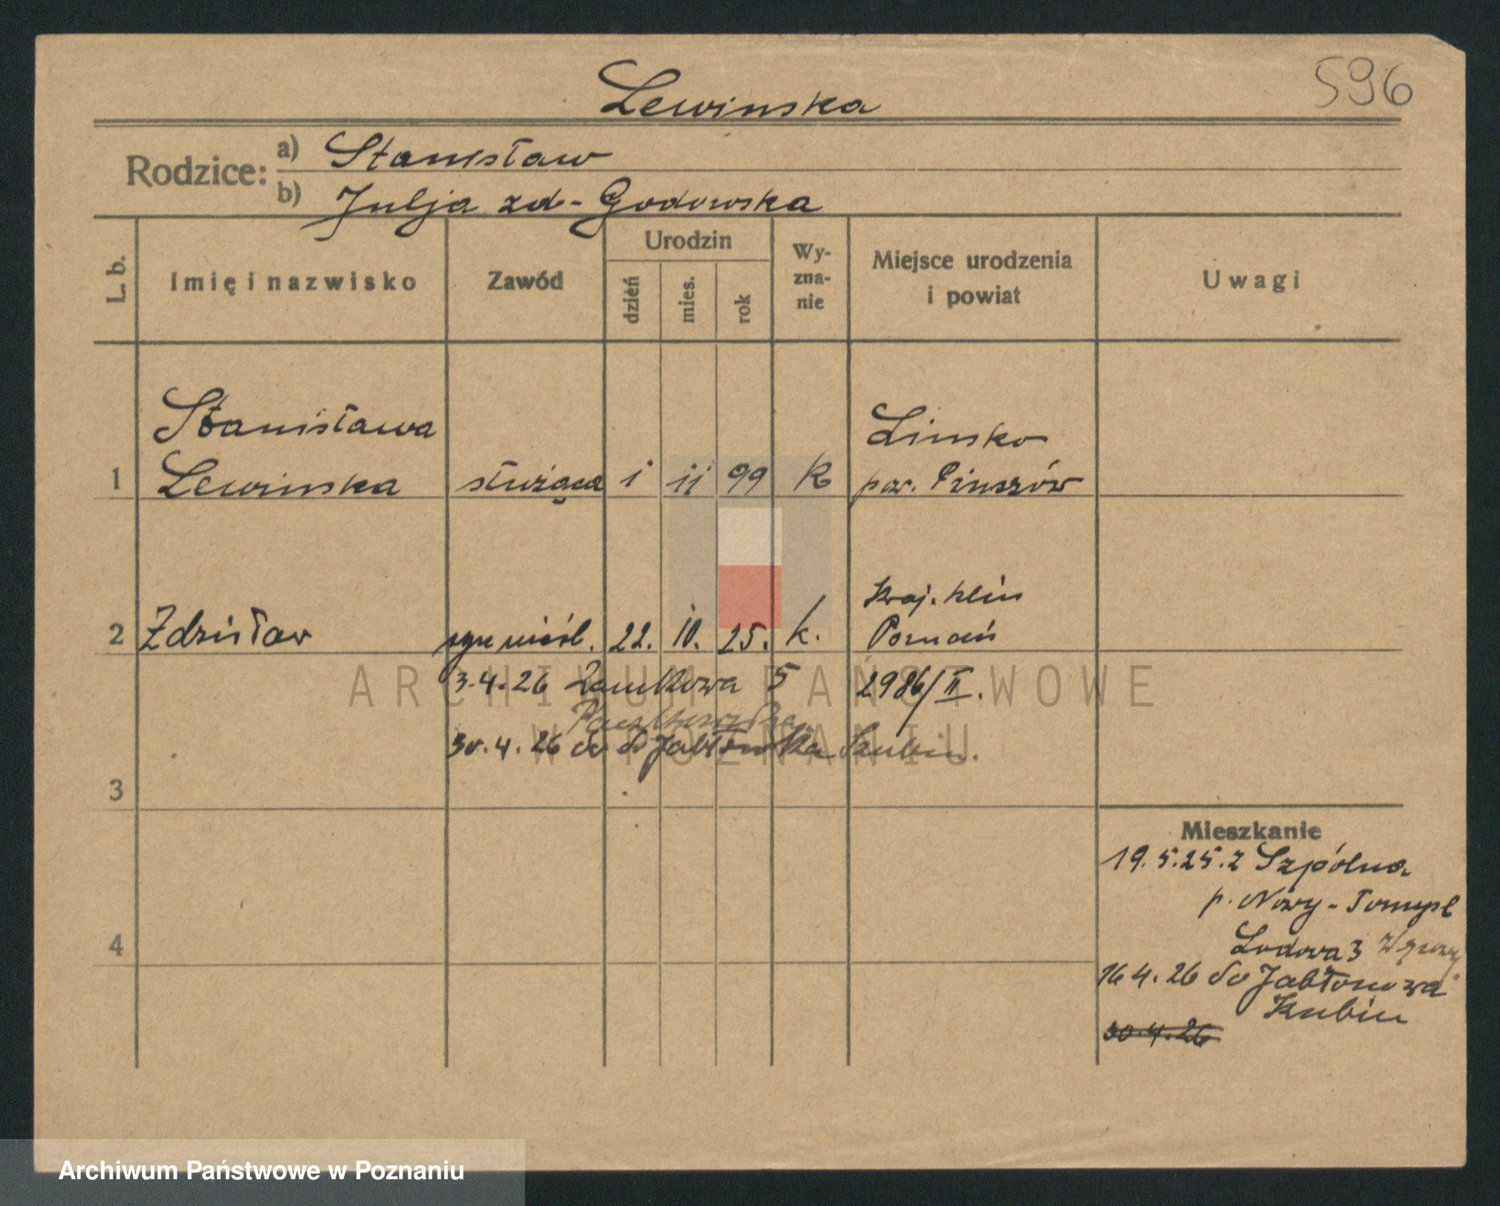 596
Lewinska
Rodzice: a) Stanisław
b) Julja zd-Godowska
L. b.
Imię i nazwisko
Zawód
Urodzin
dzień
mies.
rok
Wy-
zna-
nie
Miejsce urodzenia
i powiat
Uwagi
1
Stanisława
Lewinska
służąca
1
11
99
k
Linsko
pow. Pinszów
2
Zdzisław
syn nieśl.
22.
10.
25.
k.
Kraj. klin
Poznań
3.4.26 Zamkowa 5
2986/II.
30.4.26 do Jabłowka Szubin.
3
4
Mieszkanie
19.5.25. z Szpólna
p. Nowy-Tomyśl
Lodowa 3
16 4.26 do Jabłonowa
30.4.26
ARCHIWUM PAŃSTWOWE
W POZNANIU
Archiwum Państwowe w Poznaniu